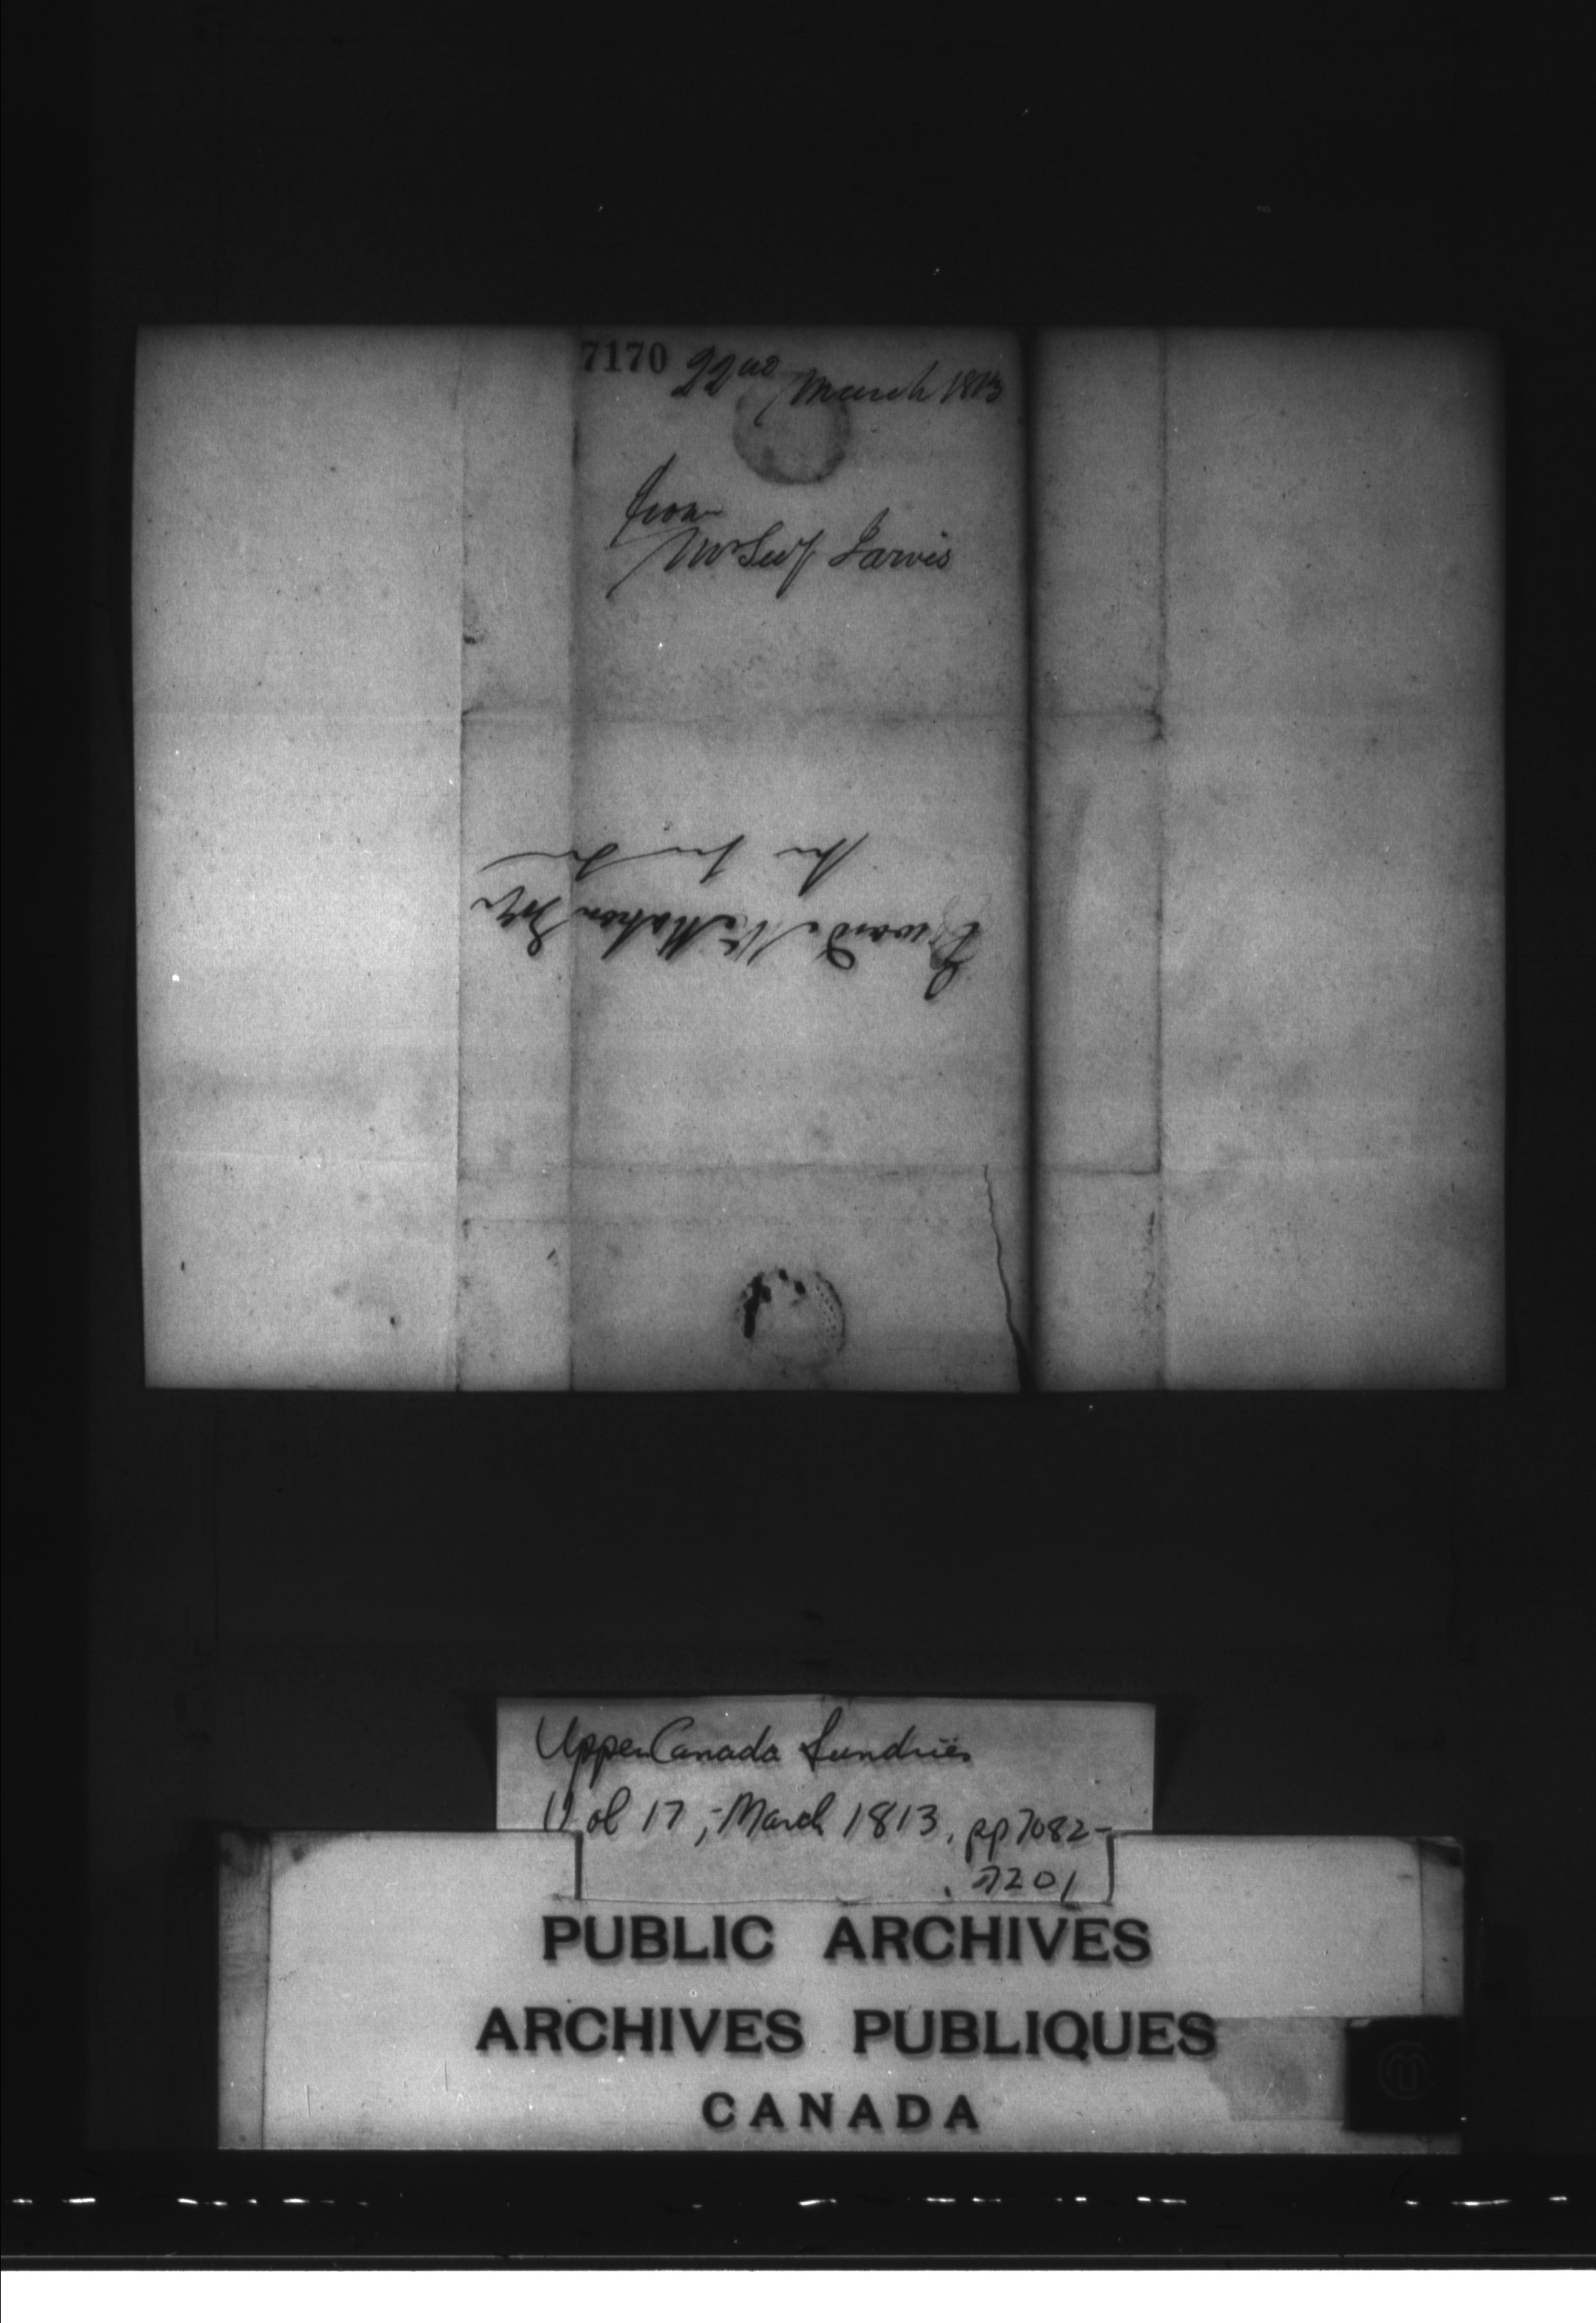 7170 22nd March 1813
from
Mr Secy Jarvis
Edward McMahon Esqr
Upper Canada Sundries
Vol 17, - March 1813, pp 7082-
7201
PUBLIC ARCHIVES
ARCHIVES PUBLIQUES
CANADA